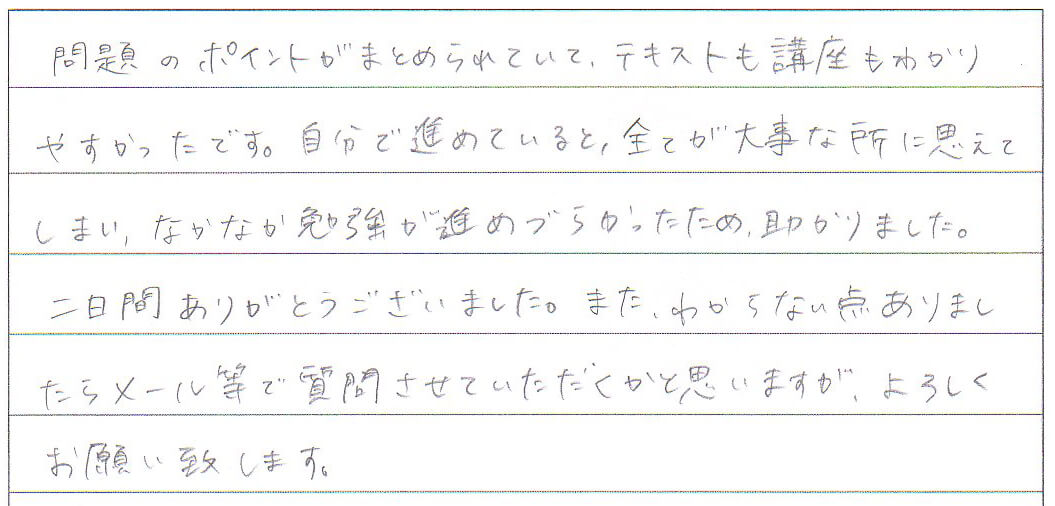 問題のポイントがまとめられていて、テキストも講座もわかり
やすかったです。自分で進めていると、全てが大事な所に思えて
しまい、なかなか勉強が進めづらかったため、助かりました。
二日間ありがとうございました。また、わからない点ありまし
たらメール等で質問させていただくかと思いますが、よろしく
お願い致します。